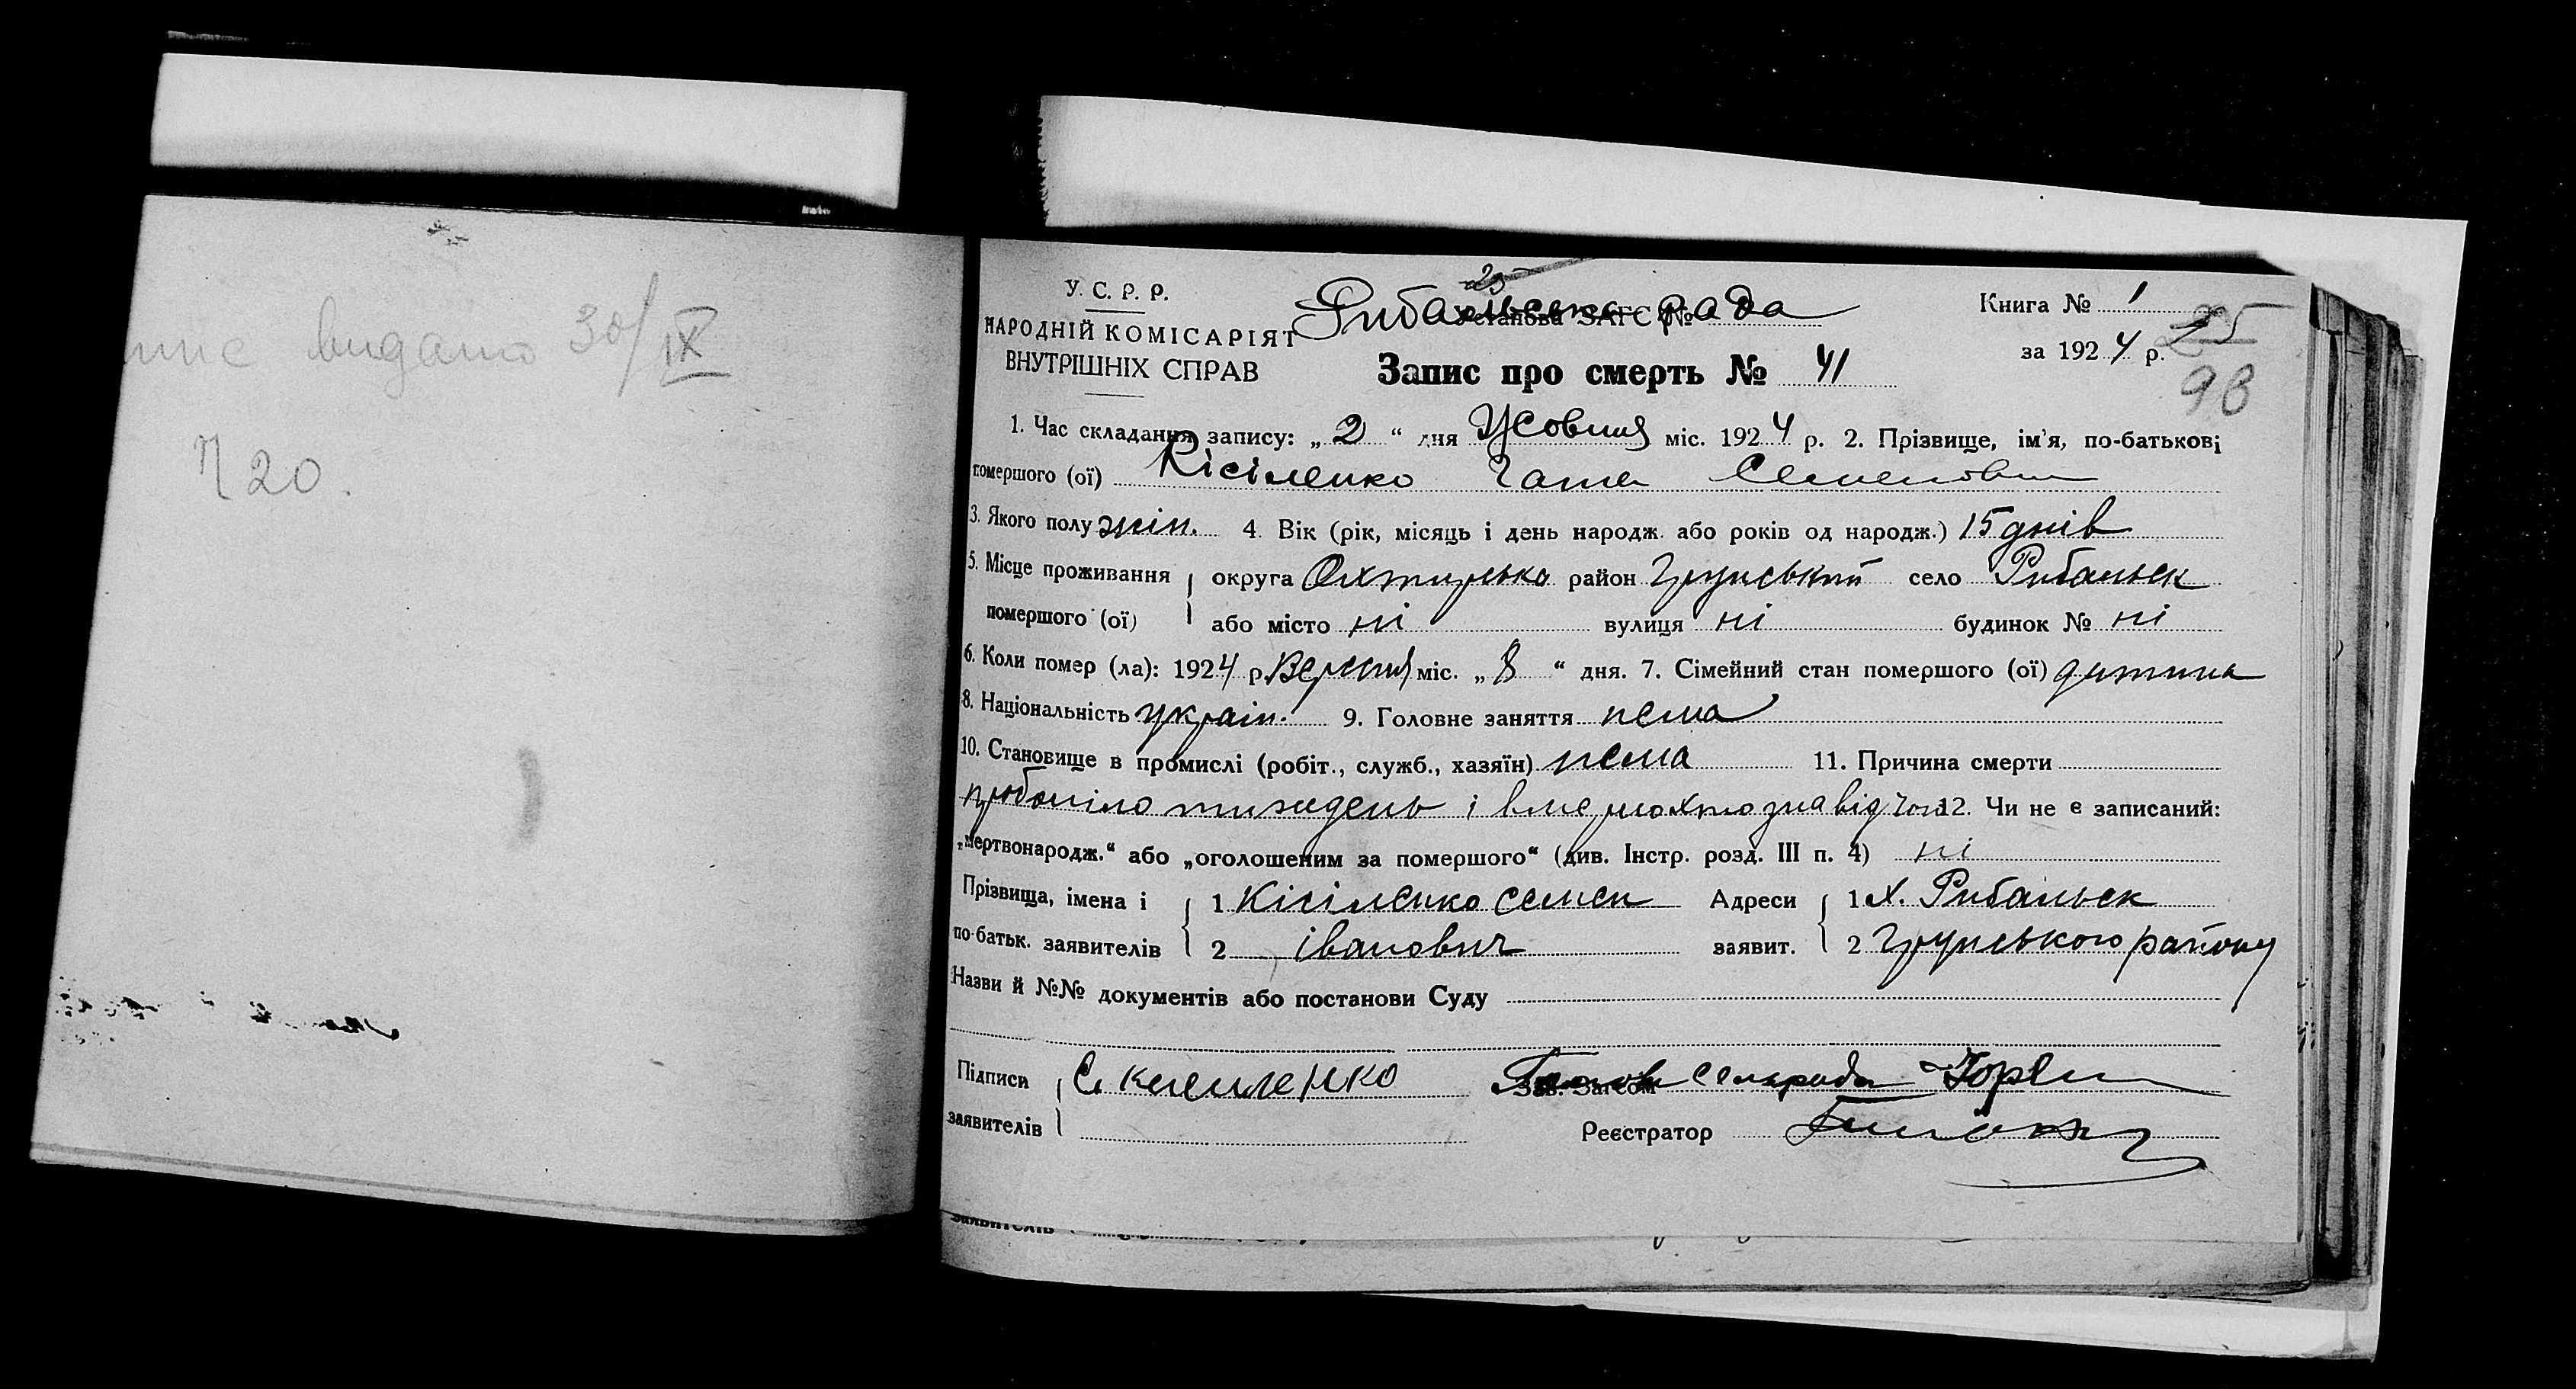 видано 30/IX
У. С. Р. Р.
НАРОДНІЙ КОМІСАРІЯТ
ВНУТРІШНІХ СПРАВ
Рибальська рада
Установа ЗАГС №
Книга № 1
за 1924 р.
25
98
Запис про смерть № 41
1. Час складання запису: „2“ дня Жовтня міс. 1924 р. 2. Прізвище, ім'я, по-батькові
помершого (ої) Кісіленко Семеновн
3. Якого полу жін. 4. Вік (рік, місяць і день народж. або років од народж.) 15 днів
5. Місце проживання помершого (ої) округа Охтирсько район Грунський село Рибальск
або місто ні вулиця ні будинок № ні
6. Коли помер (ла): 1924 р. Версня міс. „8“ дня. 7. Сімейний стан помершого (ої) дитина
8. Національність україн. 9. Головне заняття нема
10. Становище в промислі (робіт., служб., хазяїн) нема 11. Причина смерти
проболіло тиждень і вмерло хто зна від чого 12. Чи не є записаний:
„мертвонародж.“ або „оголошеним за помершого“ (див. Інстр. розд. III п. 4) ні
Прізвища, імена і по-батьк. заявителів 1 Кісіленко Семен Адреси заявит. 1 х. Рибальск
2 Іванович 2 Грунського району
Назви й №№ документів або постанови Суду
Підписи заявителів С Кисиленко Зав. Загсом сельрада
Реєстратор